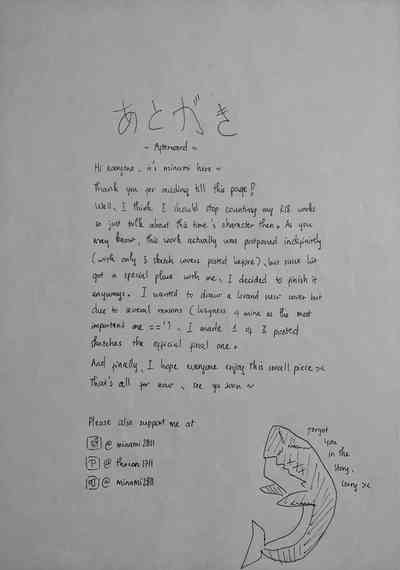 あとがき
~ Afterword ~
Hi everyone, it's minami here ~
Thank you for reading till this page!
Well, I think I should stop counting my works
so just talk about this time's character then. As you
may know, this work actually was postponed indefinitely
(with only 3 sketch covers posted before), but since
got a special place with me, I decided to finish it
anyways. I wanted to draw a brand new cover but
due to several reasons (laziness of mine as the most
important one =='), I made 1 of 3 posted
sketches the official final one.
And finally, I hope everyone enjoy this small piece ><
That's all for now, see ya soon ~
Please also support me at
@ minami2811
P @ 1711
@ minami2811
forgot
you
in the
story,
sorry ><